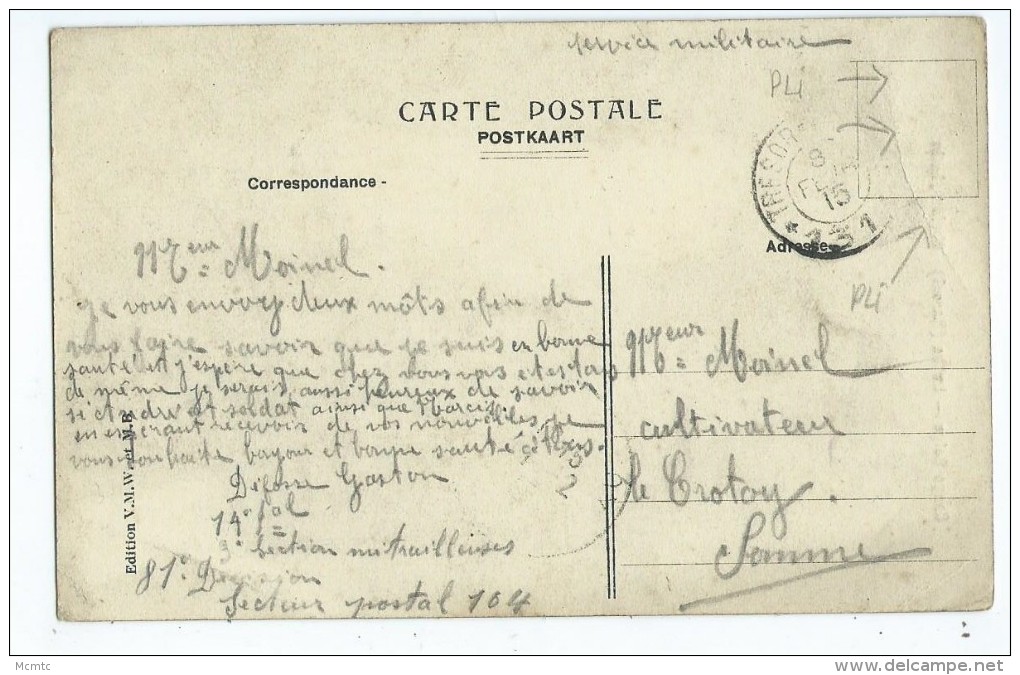 service militaire
PLi
CARTE POSTALE
POSTKAART
TRESOR
8
15
131
Correspondance -
Adresse
PLi
Mr eur Moinel.
je vous envoy deux môts afin de
vous faire savoir que je suis en bonne
santé et j'espère que chez vous vous etes tous
de même je serais aussi heureux de savoir
si est soldat ainsi que
en esperant recevoir de vos nouvelles je
vous souhaite bonjour et bonne santé à tous.
Gaston
14e
3e Section mitrailleuses
81e Division
Secteur postal 104
Edition V.M.W. et M.B.
Mr eur Moinel
cultivateur
le Crotoy.
Somme
Mcmtc
www.delcampe.net